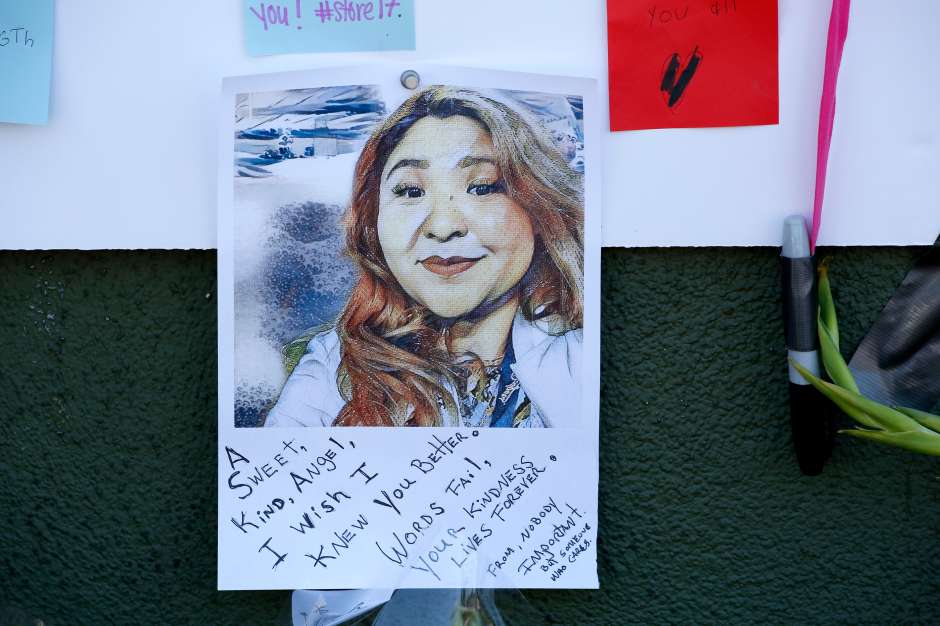 GTh
you! #store17.
YOU all
A
SWEET,
KIND, ANGEL,
I WISH I
KNEW YOU BETTER.
WORDS FAIL,
YOUR KINDNESS
LIVES FOREVER.
FROM, NOBODY
IMPORTANT.
BUT SOMEONE
WHO CARES.